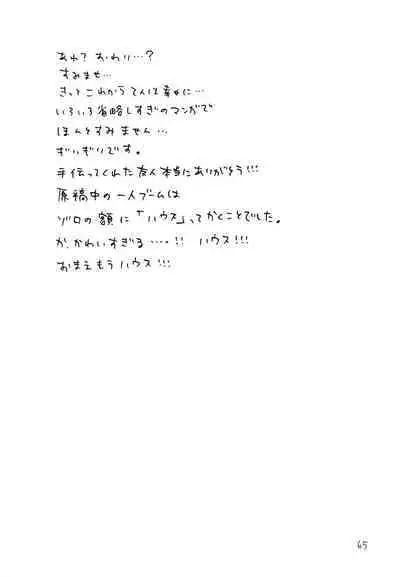 あれ？ おわり…？
すみませ…
きっと これから 2人は 幸せに…
いろいろ省略しすぎのマンガで
ほんとすみません…
ぎりぎりです。
手伝ってくれた友人本当にありがとう!!!
原稿中の一人ブームは
ゾロの額に「ハウス」ってかくことでした。
か、かわいすぎる…!! ハウス!!!
おまえもうハウス!!!
65